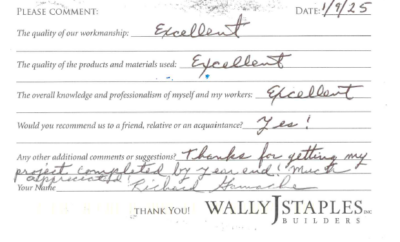 PLEASE COMMENT: DATE: 1/9/25
The quality of our workmanship: Excellent
The quality of the products and materials used: Excellent
The overall knowledge and professionalism of myself and my workers: Excellent
Would you recommend us to a friend, relative or an acquaintance? Yes!
Any other additional comments or suggestions? Thanks for getting my
project completed by year end! Much
appreciated!
Your Name Richard
THANK YOU! WALLY J STAPLES INC
BUILDERS